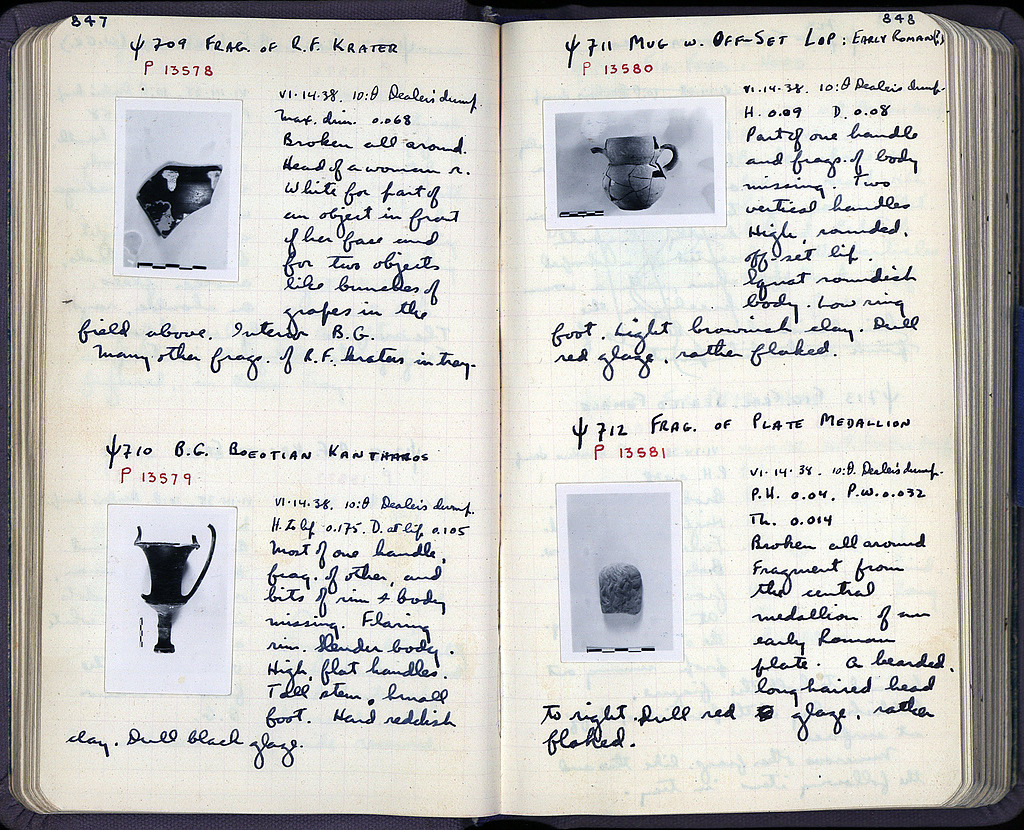 847
ψ 709 FRAG. OF R.F. KRATER
P 13578
VI-14-38. 10:Θ Dealer's dump.
Max. dim. 0.068
Broken all around.
Head of a woman r.
White for part of
an object in front
of her face and
for two objects
like bunches of
grapes in the
field above. Interior B.G.
Many other frags. of R.F. kraters in tray.
ψ 710 B.G. BOEOTIAN KANTHAROS
P 13579
VI-14-38. 10:Θ Dealer's dump.
H. to lip 0.175. D. at lip 0.105
Most of one handle,
frag. of other, and
bits of rim & body
missing. Flaring
rim. Slender body.
High, flat handles.
Tall stem, small
foot. Hard reddish
clay. Dull black glaze.
848
ψ 711 MUG W. OFF-SET LOP: EARLY ROMAN(?)
P 13580
VI-14-38. 10:Θ Dealer's dump.
H. 0.09 D. 0.08
Part of one handle
and frags. of body
missing. Two
vertical handles
High, rounded,
off-set lip.
Squat roundish
body. Low ring
foot. Light brownish clay. Dull
red glaze, rather flaked.
ψ 712 FRAG. OF PLATE MEDALLION
P 13581
VI-14-38. 10:Θ. Dealer's dump.
P.H. 0.04. P.W. 0.032
Th. 0.014
Broken all around
Fragment from
the central
medallion of an
early Roman
plate. A bearded,
long haired head
to right. Dull red glaze, rather
flaked.